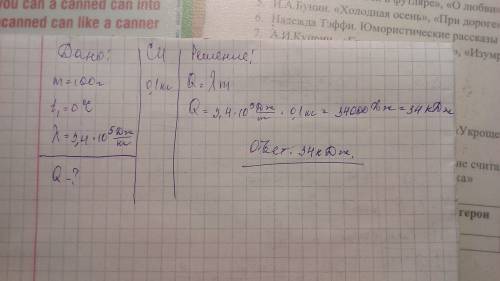 you can a canned can into
canned can like a canner
5. И.А.Бунин. «Холодная осень», «При дороге
6. Надежда Тэффи. Юмористические рассказы
7. А.И.Куприн.
«Изумр
Дано:
m=100г
t₁=0°C
λ=3,4·10⁵ Дж/кг
Q-?
СИ
0,1кг
Решение:
Q=λm
Q=3,4·10⁵ Дж/кг · 0,1кг = 34000 Дж = 34 кДж
Ответ: 34 кДж.
«Укроще
ние счита
ка»
герои